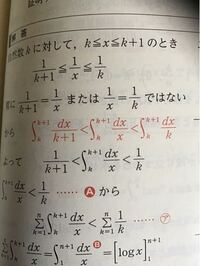 解答
然数kに対して，k≦x≦k+1のとき
1/(k+1)≦1/x≦1/k
に 1/(k+1)=1/x または 1/x=1/k ではない
から ∫_k^{k+1} dx/(k+1)<∫_k^{k+1} dx/x<∫_k^{k+1} dx/k
よって 1/(k+1)<∫_k^{k+1} dx/x<1/k
∫_k^{k+1} dx/x<1/k …… A から
∑_{k=1}^{n}∫_k^{k+1} dx/x<∑_{k=1}^{n} 1/k …… ㋐
∫_k^{k+1} dx/x=∫_1^{n+1} dx/x B =[log x]_1^{n+1}